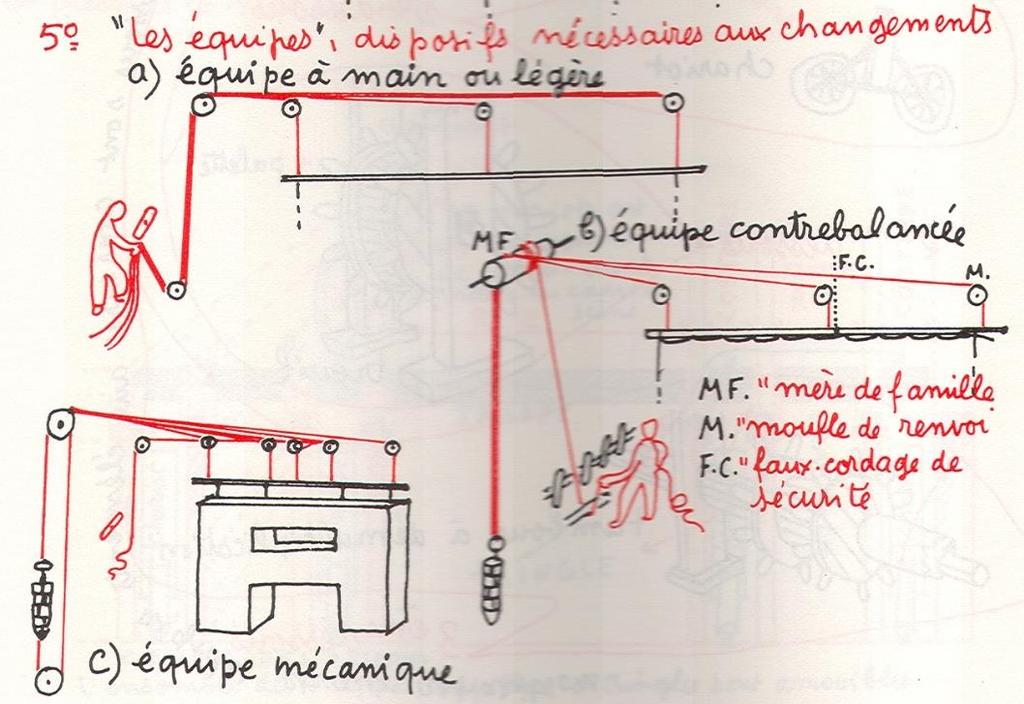 5º "Les équipes", dispositifs nécessaires aux changements
a) équipe à main ou légère
b) équipe contrebalancée
MF
F.C.
M.
MF. "mère de famille
M. "moufle de renvoi
F.C. "faux-cordage de
sécurité
c) équipe mécanique